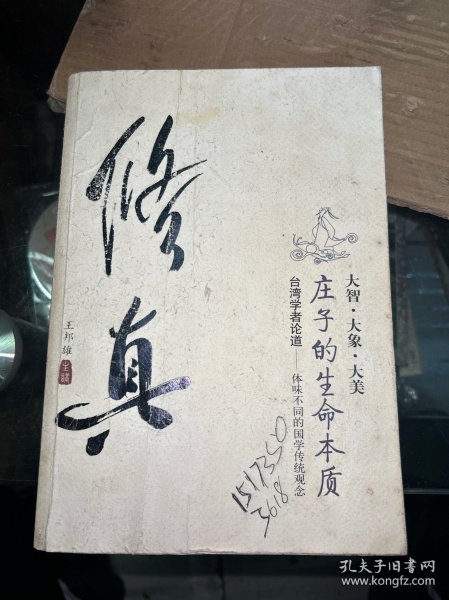 修真
大智·大象·大美
庄子的生命本质
台湾学者论道——体味不同的国学传统观念
王邦雄
主讲
3618
孔夫子旧书网
www.kongfz.com